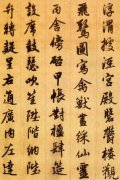 浮渭據涇宮殿盤鬱樓觀
飛驚圖寫禽獸畫綵仙靈
丙舍傍啓甲帳對楹肆筵
設席鼓瑟吹笙陞階納陛
弁轉疑星右通廣內左達